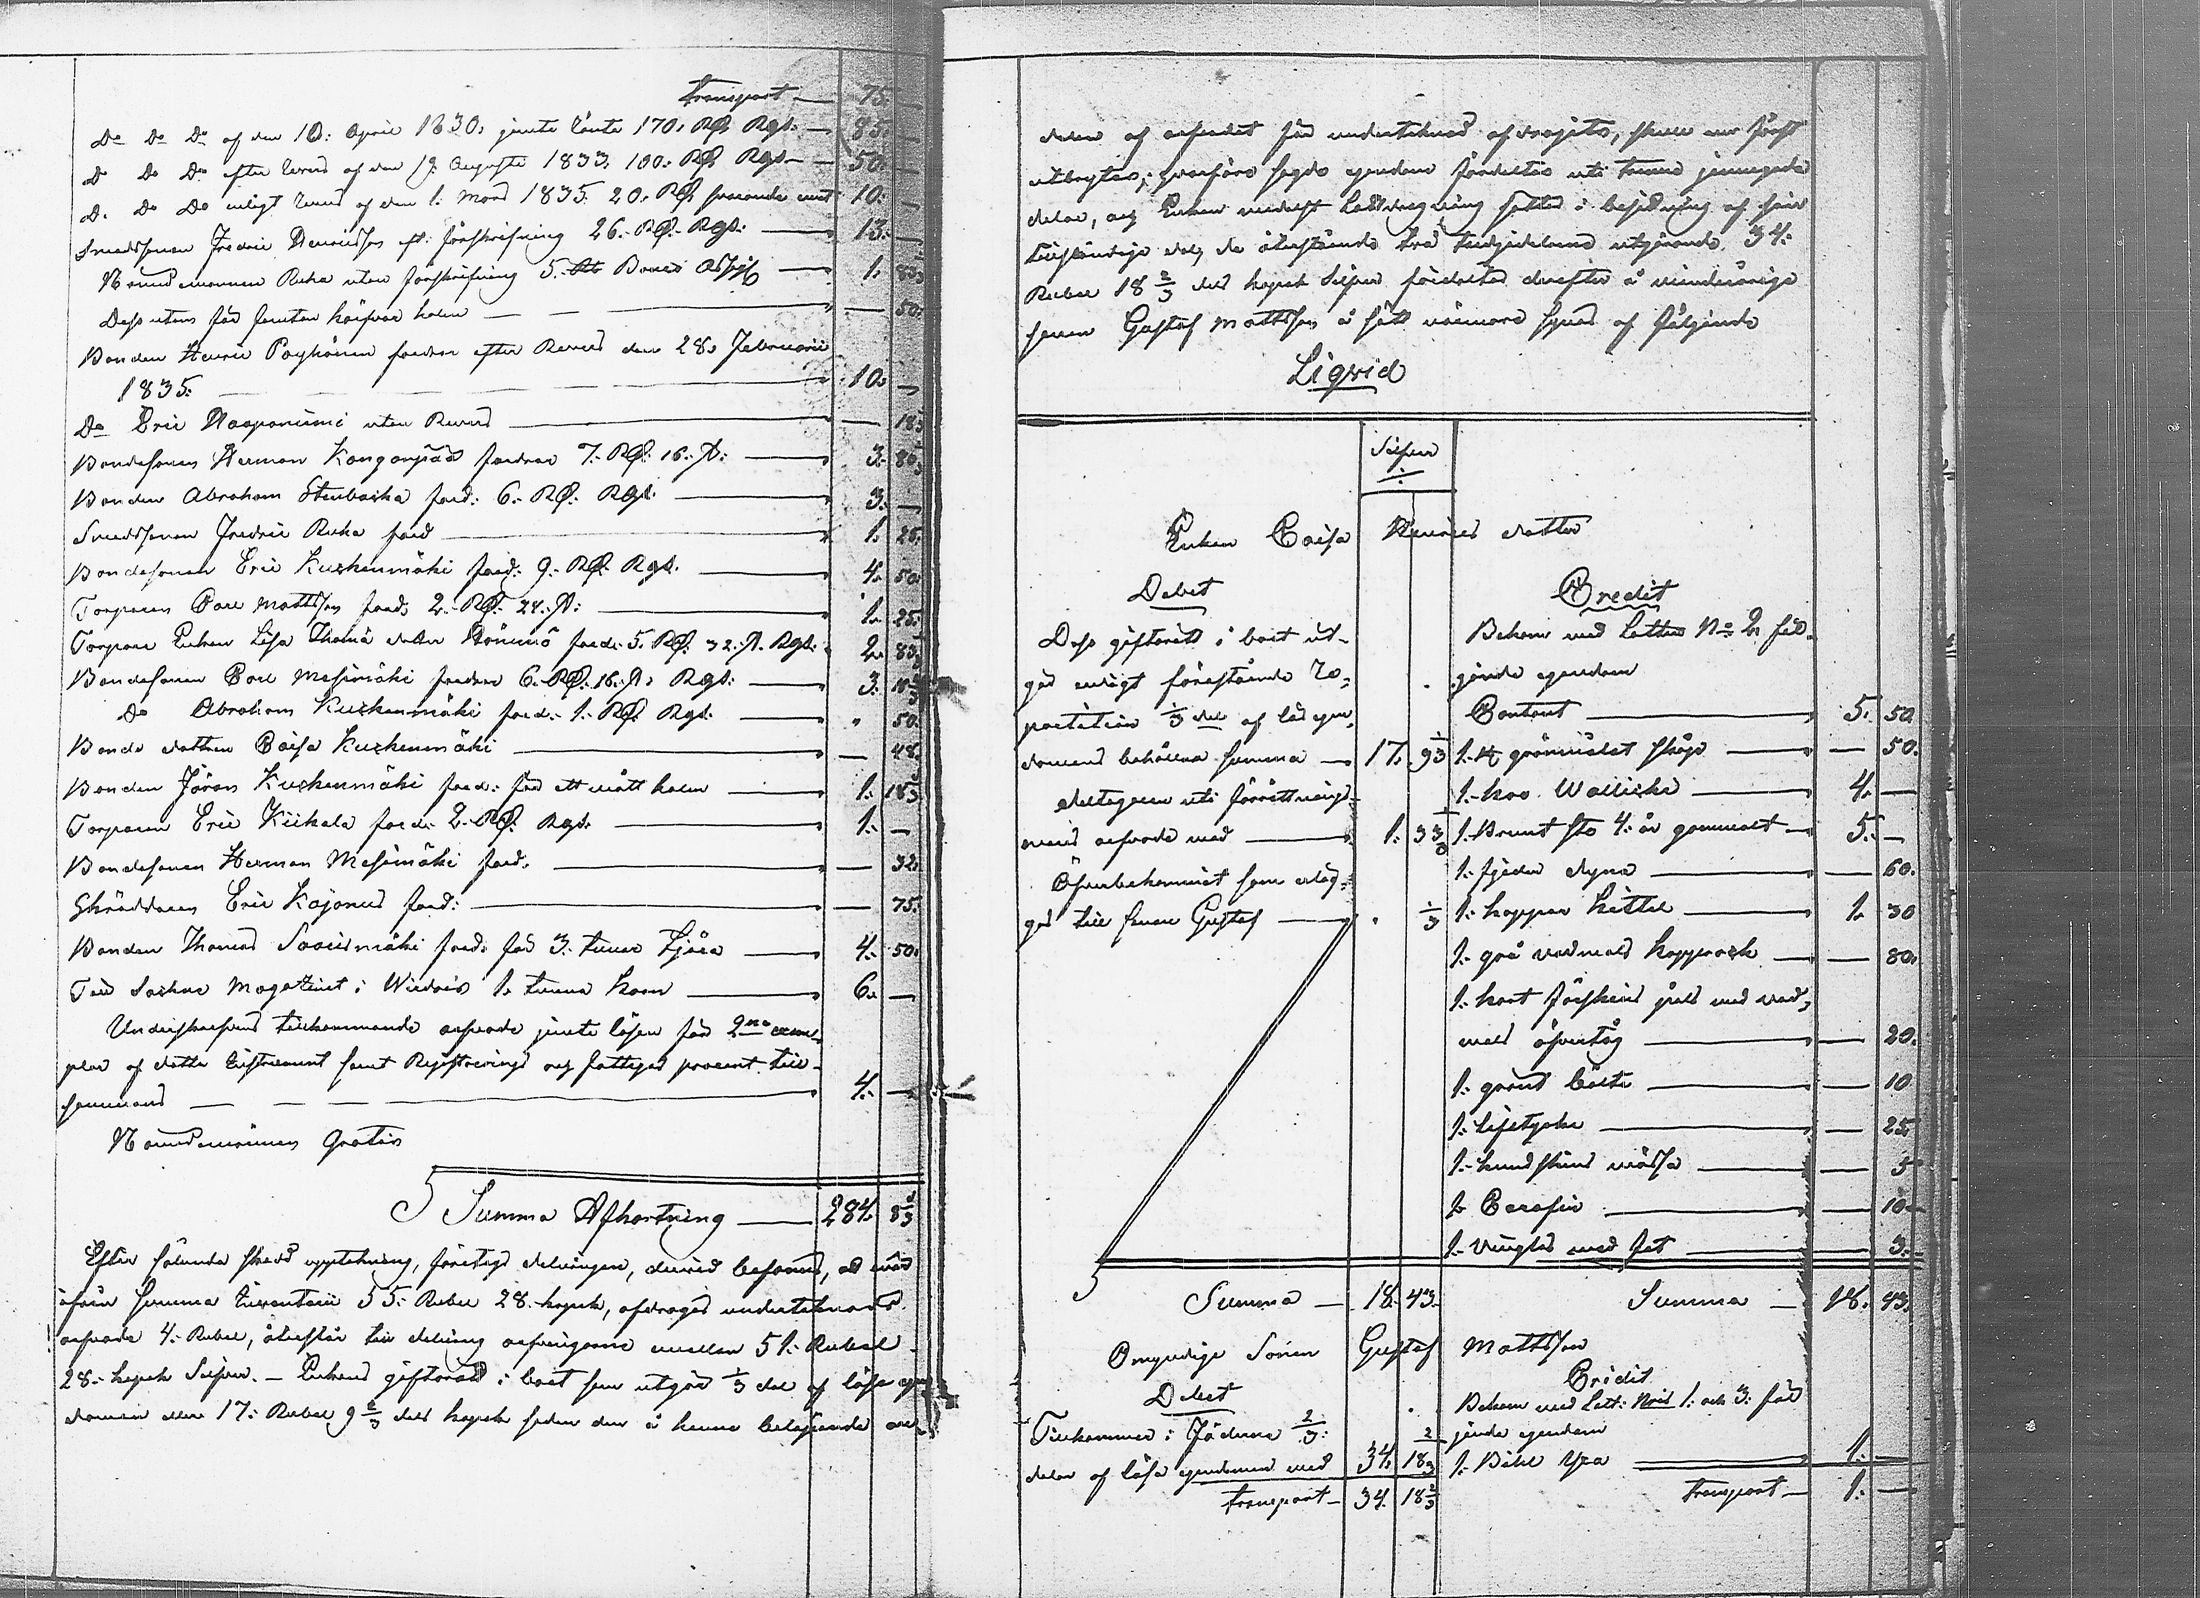 Transport — 75. —
Do Do Do af den 10: April 1830. jemte ränta 170. RD. Rgs. — 85. —
Do Do Do efter Revers af den 19 Augusti 1833. 100. RD. Rgs — 50. —
Do Do Do enligt Revers af den 1. Mars 1835. 20. RD. 10. —
Fredric Henricsson eft. förskrifning 26. RD. Rgs. — 13. —
Nämndemannen Ruha utan förskrifning 5. 1.
Dess utom för — 50.
Bonden Henric fordrar efter Revers den 28. Februarii
1835. — 10. —
Do Eric Haapaniemi utan Revers — 18
Bondesonen Herman Kangaspää fordrar 7. RD. 16. — 3.
Bonden Abraham Stenbacka ford: 6. RD. Rgs. — 3. —
Fredric Ruha ford — 1. 25.
Bondesonen Eric Kuskenmäki ford: 9. RD. Rgs. — 4. 50.
Torparen Carl Mattsson ford: 2. RD. 24. — 1. 25.
Torpare Enkan Lisa Thomæ dotter ford: 5. RD. 32. Rgs. 2. 83
Bondesonen Carl Mesimäki fordrar 6. RD. 16. Rgs. — 3.
Do Abraham Kuskenmäki ford: 1. RD. Rgs. — 50.
Bonde dottren Caisa Kuskenmäki — 48.
Bonden Jöran Kuskenmäki ford: för ett — 1. 18
Torparen Eric Kiikala ford: 2. RD. Rgs. — 1. —
Bondesonen Herman Mesimäki ford. — 32.
Skräddaren Eric Kajanus ford: — 75.
Bonden Thomas Saarismäki ford: för 3. tunnor tjära — 4. 50.
Till Sockne Magazinet i 1. tunna korn — 6. —
Underskrefvens tillkommande arfvode jemte lösen för 2ne exem-
plar af detta Instrument samt Registrerings och fattiges procent till-
sammans — 4. —
Nämndemännen Gratis
Summa Afkortning — 284. 8 2/3
Efter sålunda skedd uppteckning, företogs delningen, dervid befanns, at när
ifrån Summa Inventarii 55. Rubel 28. kopek, afdrages undertecknads
arfvode 4. Rubel, återstår till delning arfvingarne emellan 51. Rubel
28. kopek Silfver. — Enkans giftorätt i boet som utgör 1/3 del af lösa egen
domen eller 17. Rubel 9 1/3 dels kopek sedan den å henne belöpande an-
delen af arfvodet för undertecknad afdragits, skulle nu först
utbrytas; hvarföre sagde egendom fördeltes uti trenne jemngoda
delar, och Enkan medelst Lottdragning sattes i besittning af sin
tillständige del, de återstående två tredjedelarne utgörande 34.
Rubel 18 2/3 dels kopek Silfver fördeltes derefter å minderårige
sonen Gustaf Mattsson å sätt närmare synes af följande
Liqvid
Silfver
Enkan Caisa Henrics dotter
Debet
Dess giftorätt i boet ut-
gör enligt förestående Re-
partition 1/3 del af lös egen-
domens behållna Summa — 17. 9 1/3
deltagren uti förrättnings-
mans arfvode med — 1. 33 1/3
Öfverbekommit som erläg-
ges till sonen Gustaf — 1/3
Summa — 18. 43.
Credit
Bekom med Lotten No 2 föl-
jande egendom
Contant — 5. 50.
1. grönmålat skåp — 50.
1. koo Wallicki — 4. —
1. Brunt sto 4. år gammalt — 5. —
1. fjeder dyna — 60.
1. koppar kittel — 1. 30
1. grå vadmals kapprock — 80.
1. kort fårskins päls med vad-
mals öfvertåg — 20.
1. grönt bälte — 10
1. lifstycke — 25
1. hundskins mössa — 5
1. Caraffin — 10
1. vinglas med fot — 3.
Summa — 18. 43.
Omyndige Sonen Gustaf Mattsson
Debet
Tillkommer i Fäderne 2/3:
delar af lösa egendomen med 34. 18 2/3
Transport — 34. 18 2/3
Credit
Bekom med Lott: Nris 1. och 3. föl
jande egendom
1. Bihl yxa — 1. —
Transport — 1. —